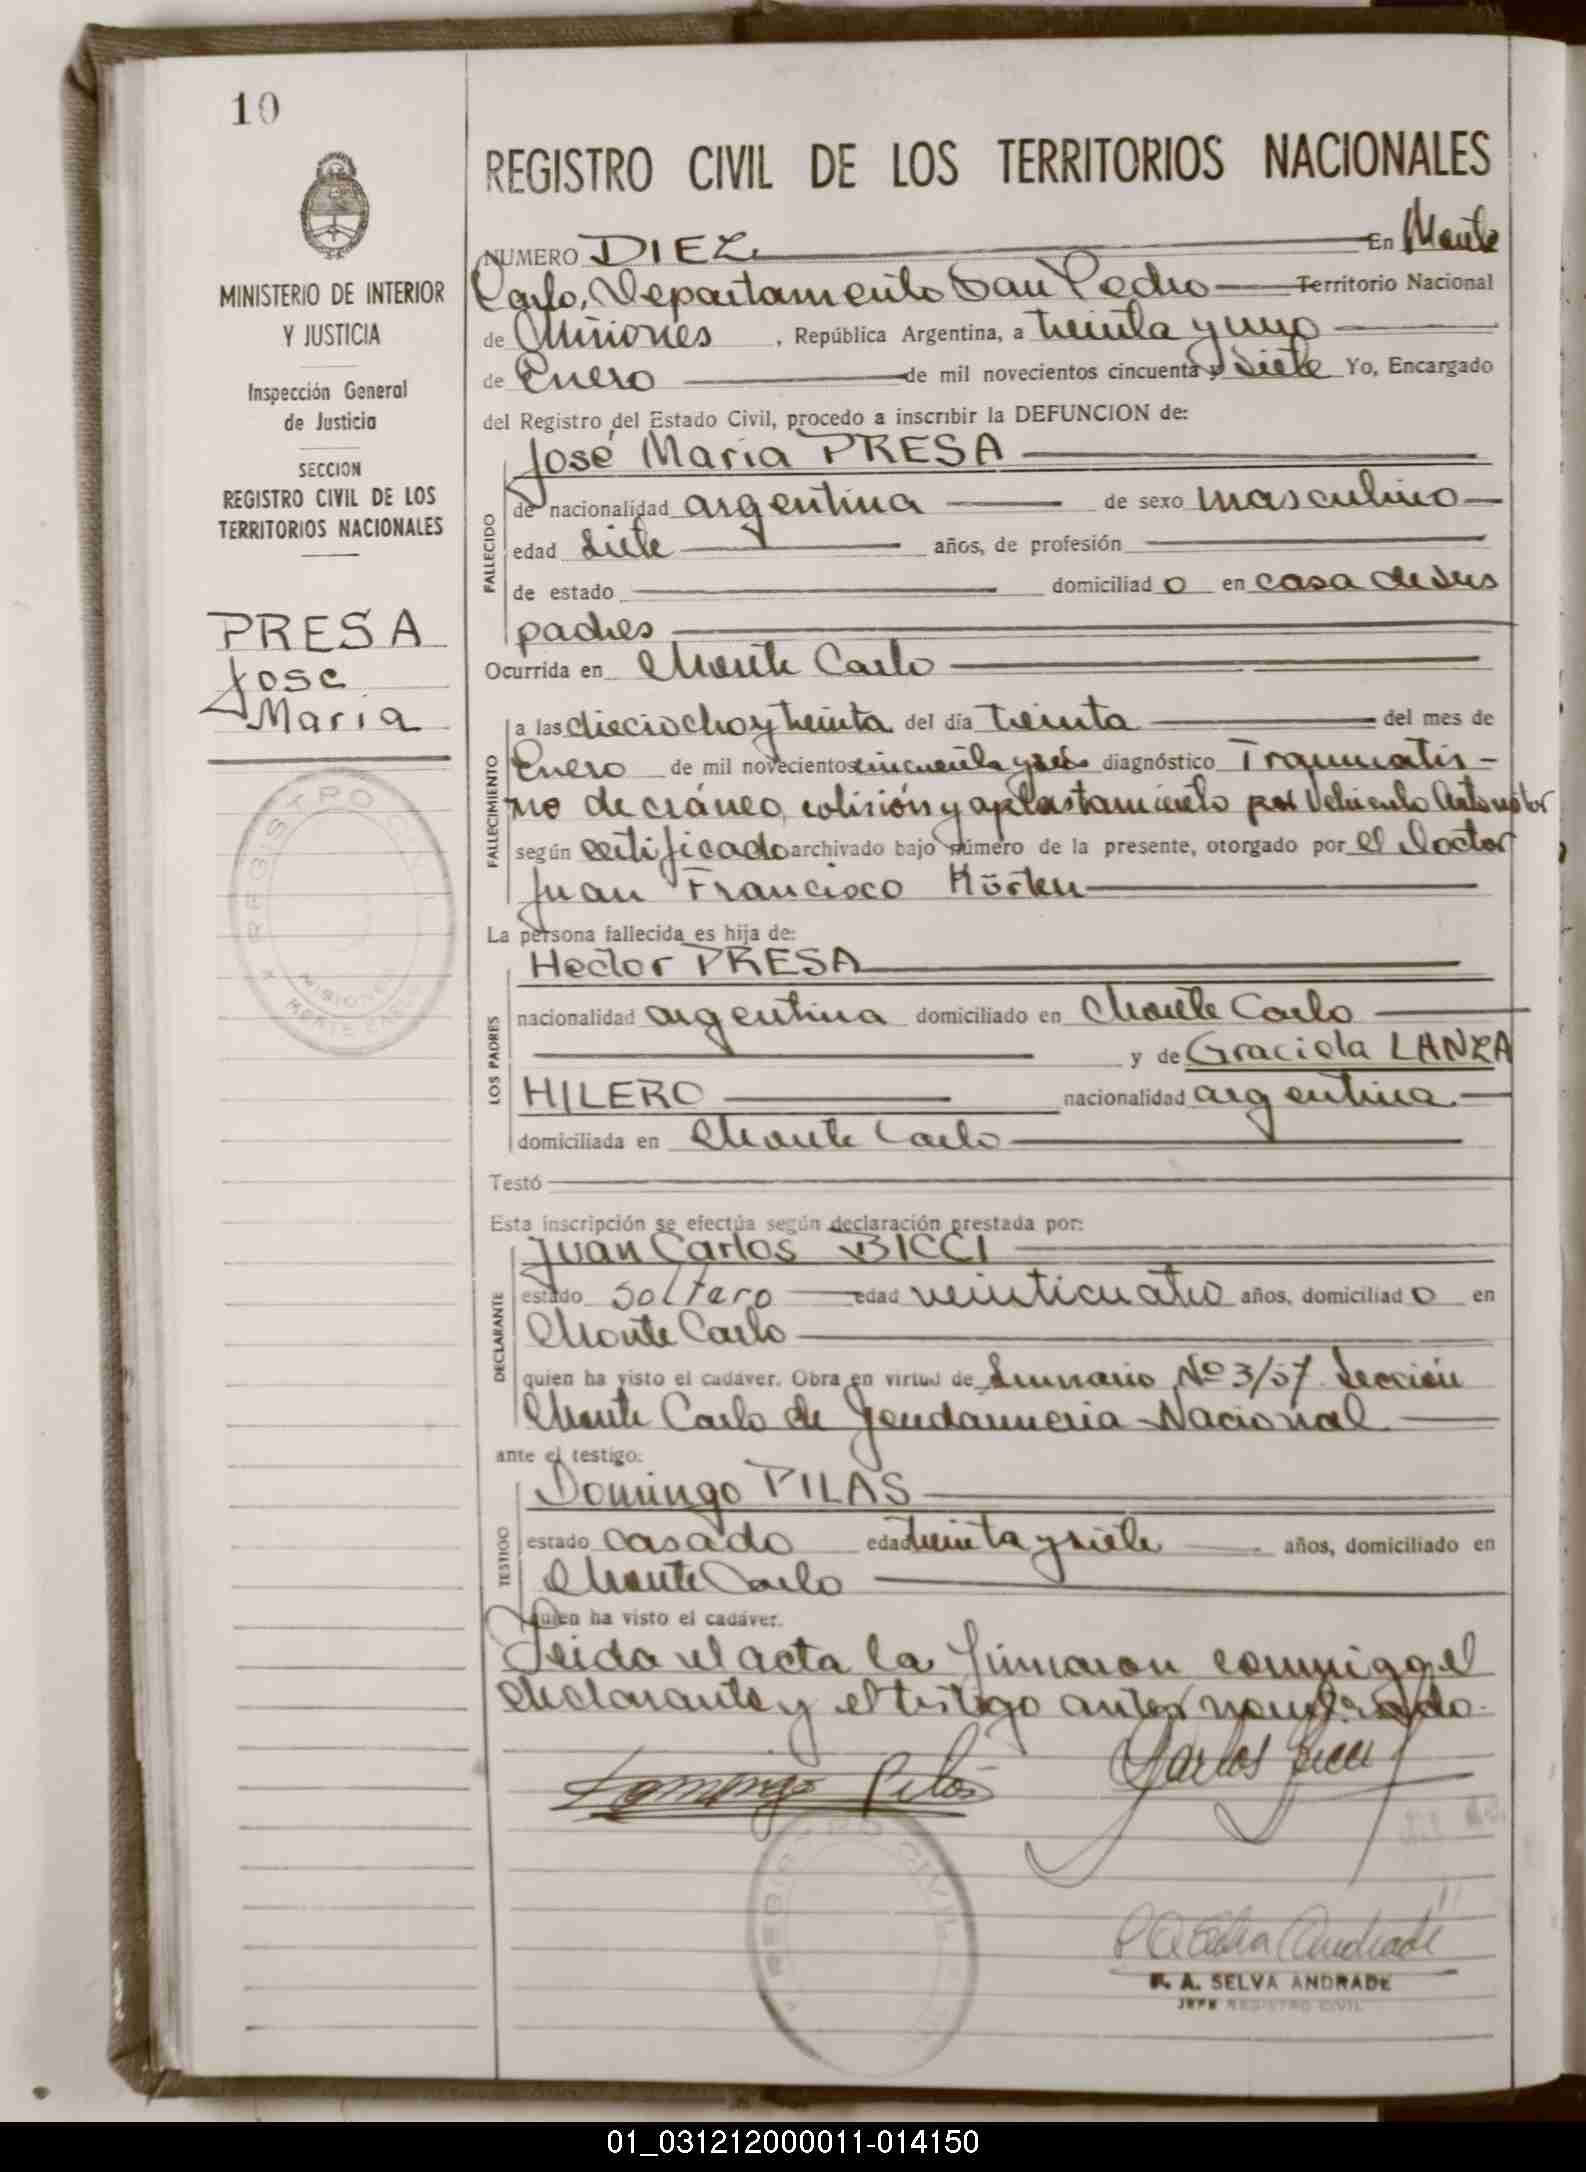 10
MINISTERIO DE INTERIOR
Y JUSTICIA
Inspección General
de Justicia
SECCION
REGISTRO CIVIL DE LOS
TERRITORIOS NACIONALES
PRESA
Jose
Maria
REGISTRO CIVIL
MISIONES
MONTE CARLO
REGISTRO CIVIL DE LOS TERRITORIOS NACIONALES
NUMERO DIEZ En Monte
Carlo, Departamento San Pedro Territorio Nacional
de Misiones, República Argentina, a treinta y uno
de Enero de mil novecientos cincuenta y siete Yo, Encargado
del Registro del Estado Civil, procedo a inscribir la DEFUNCION de:
FALLECIDO
José María PRESA
de nacionalidad argentina de sexo masculino
edad siete años, de profesión
de estado domiciliado en casa de sus
padres
Ocurrida en Monte Carlo
FALLECIMIENTO
a las dieciocho y treinta del día treinta del mes de
Enero de mil novecientos cincuenta y diagnóstico Traumatis-
mo de cráneo, colisión y aplastamiento por vehiculo Automotor
según certificado archivado bajo número de la presente, otorgado por el doctor
Juan Francisco Körten
La persona fallecida es hija de:
LOS PADRES
Hector PRESA
nacionalidad argentina domiciliado en Monte Carlo
y de Graciela LANZA
HILERO nacionalidad argentina
domiciliada en Monte Carlo
Testó
Esta inscripción se efectúa según declaración prestada por:
DECLARANTE
Juan Carlos BICCI
estado soltero edad veinticuatro años, domiciliado en
Monte Carlo
quien ha visto el cadáver. Obra en virtud de Sumario Nº 3/57 Sección
Monte Carlo de Gendarmeria Nacional
ante el testigo:
TESTIGO
Domingo PILAS
estado casado edad treinta y siete años, domiciliado en
Monte Carlo
quien ha visto el cadáver.
Leida el acta la firmaron conmigo el
declarante y el testigo antes nombrado.
Domingo Pilas
Carlos Bicci
REGISTRO CIVIL
F. A. SELVA ANDRADE
JEFE REGISTRO CIVIL
01_031212000011-014150